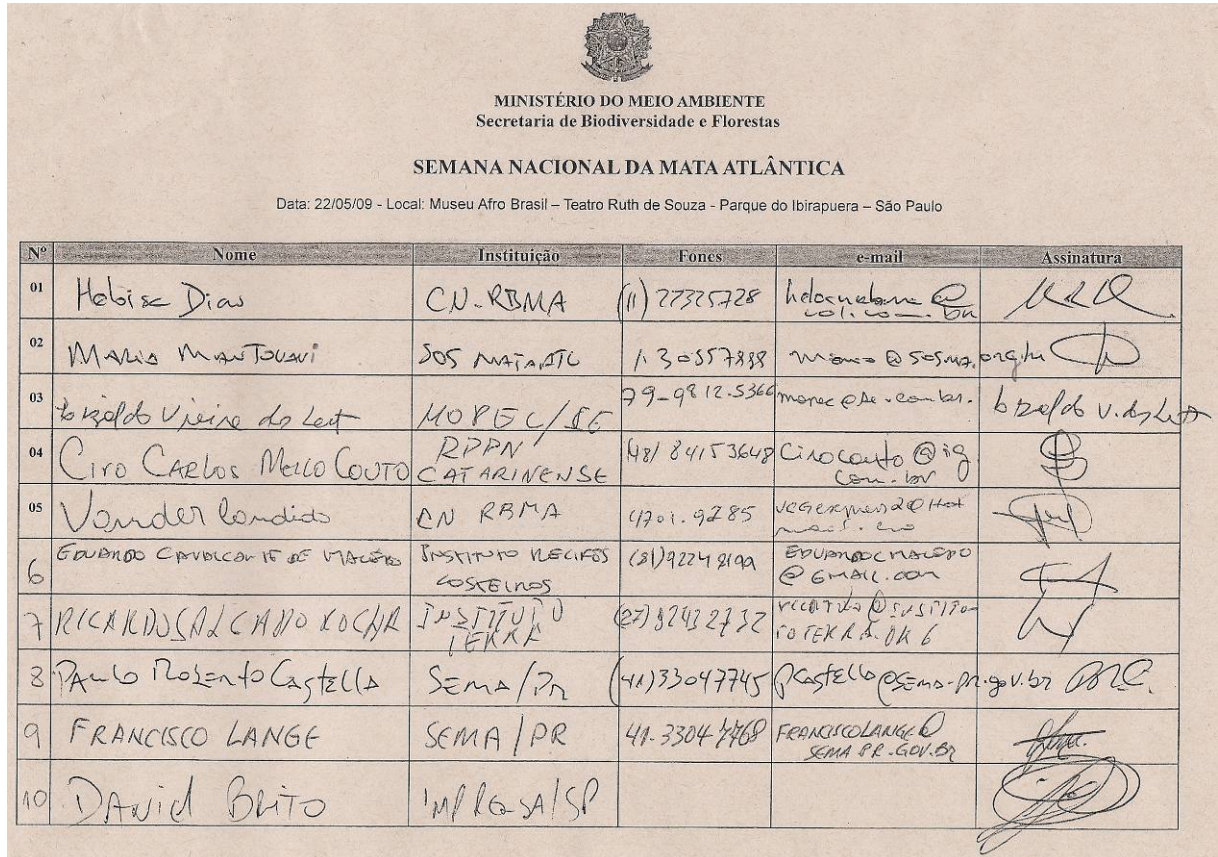 MINISTÉRIO DO MEIO AMBIENTE
Secretaria de Biodiversidade e Florestas
SEMANA NACIONAL DA MATA ATLÂNTICA
Data: 22/05/09 - Local: Museu Afro Brasil – Teatro Ruth de Souza - Parque do Ibirapuera – São Paulo
Nº Nome Instituição Fones e-mail Assinatura
01 Heloisa Dias CN-RBMA (11) 22325728
02 Mario Mantovani SOS MATA ATL @ SOSMA.org.br
03 Vieira dos MOPEC/SE 79-9812.5366 mopec@se.com.br.
04 CIRO CARLOS MELLO COUTO RPPN CATARINENSE (48) 84153648 cirocouto@ig
com.br
05 Vander Candido CN RBMA 4701.9285
6 EDUARDO CAVALCANTE DE MACEDO INSTITUTO RECIFES
COSTEIROS (81) 9224 8199 EDUARDOCMACEDO
@GMAIL.COM
7 RICARDO SALGADO ROCHA INSTITUTO
TERRA (27) 92432732 @INSTITU
TOTERRA.ORG
8 Paulo Roberto Castella SEMA/PR (41)33047745 pcastella@sema.pr.gov.br PRC.
9 FRANCISCO LANGE SEMA/PR 41-3304 7768 FRANCISCOLANGE@
SEMA.PR.GOV.BR
10 DAVID BRITO IMPRENSA/SP